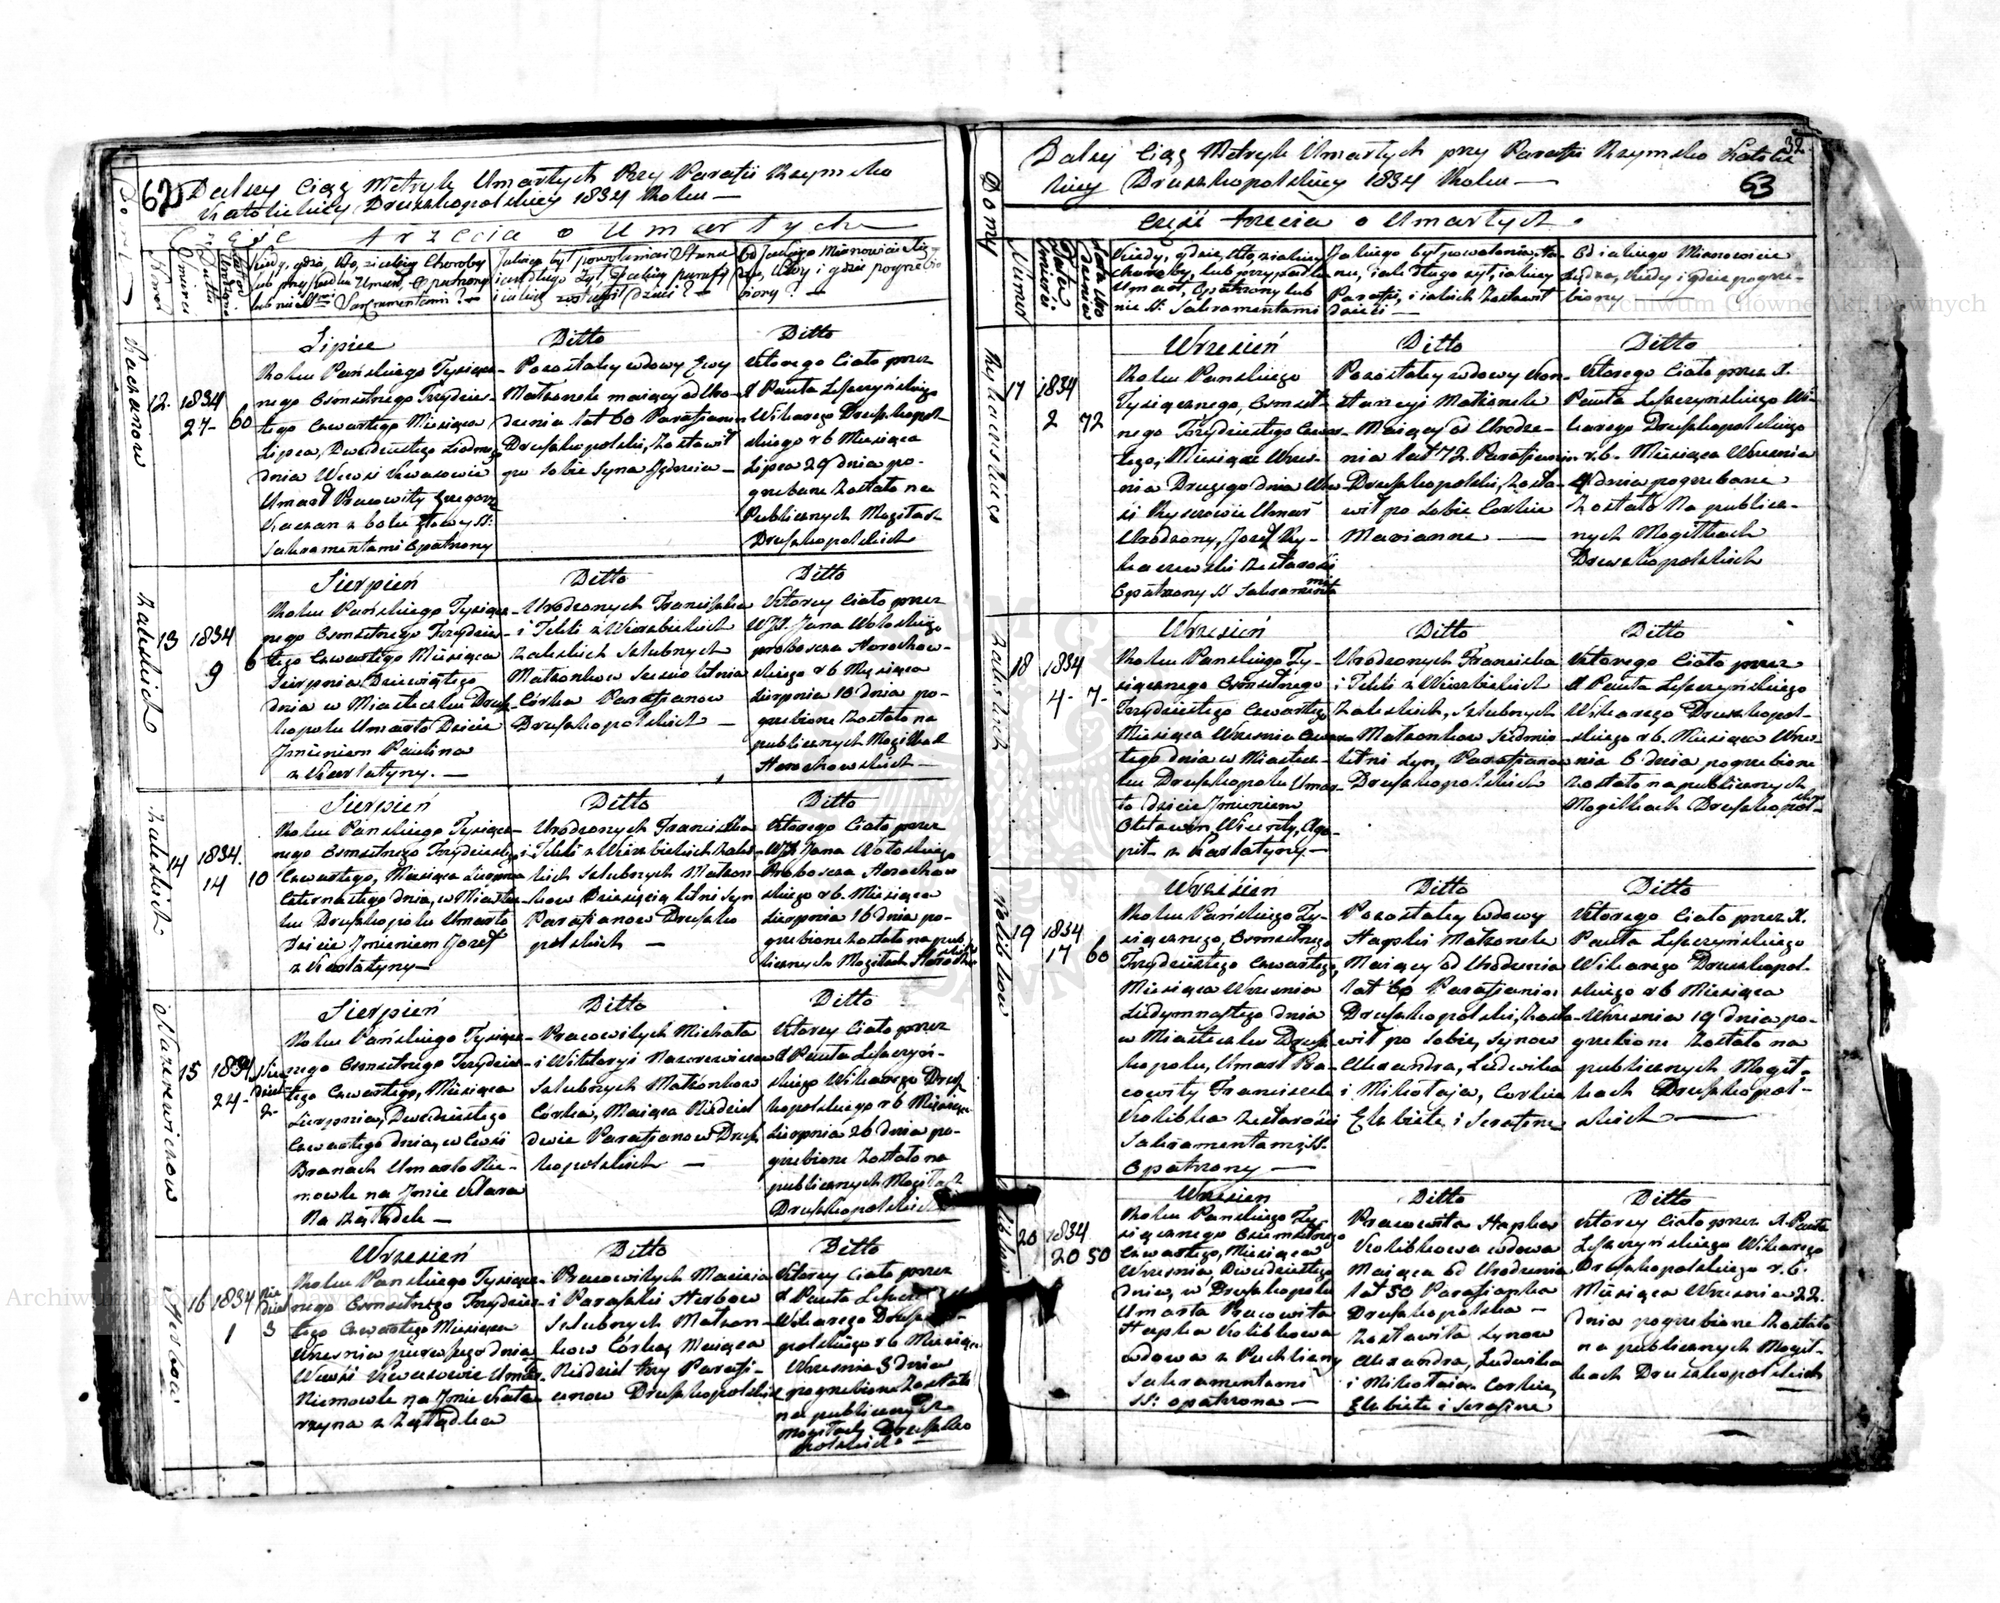 62
Dalszy Ciąg Metryk Umarłych Przy Parafii Rzymsko
Katolickiey Druszkopolskiey 1834 Roku —
Część Trzecia o Umarłych
Domy
Numer
Kiedy, gdzie, kto, z iakiey Choroby
lub przypadku Umarł, Opatrzony
lub nie SS: Sakramentami? —
Jakiego był powołania i Stanu
iak długo żył, Jakiey parafii
i iakie zostawił dzieci? —
Od Jakiego Mianowicie Xię-
dza, Kiedy i gdzie pogrze-
biony? —
Kaczanow
12. 1834
27- 60
Lipiec
Roku Pańskiego Tysiącz-
nego Osmsetnego Trzydzies-
tego Czwartego Miesiąca
Lipca, Dwudziestego Siodmego
dnia We wsi Kwasowie
Umarł Pracowity Grzegorz
Kaczan z bolu głowy SS:
Sakramentami Opatrzony
Ditto
Pozostałey wdowy Ewy
Małzonek maiący od Uro-
dzenia lat 60 Parafianin
Druszkopolski, Zostawił
po Sobie Syna Jędrzeia —
Ditto
Ktorego Ciało przez
X Pawła Leszczyńskiego
Wikarego Druszkopol-
skiego r b Miesiąca
Lipca 29 dnia po-
grzebane Zostało na
Publicznych Mogiłach
Druszkopolskich
Zaleskich
13 1834
9 6
Sierpień
Roku Pańskiego Tysiącz-
nego Osmsetnego Trzydzies-
tego Czwartego Miesiąca
Sierpnia Dziewiątego
dnia w Miasteczku Drusz-
kopolu Umarło Dziecie
Jmieniem Paulina
z Kwartatyny. —
Ditto
Urodzonych Franciszka
i Tekli z Wierzbickich
Zaleskich Szlubnych
Małzonkow Szescioletnia
Córka Parafianow
Druszkopolskich —
Ditto
Ktorey Ciało przez
WJX Jana Wołoskiego
proboszcza Horochow-
skiego r b Miesiąca
Sierpnia 10 dnia po-
grzebione Zostało na
publicznych Mogiłkach
Horochowskich
Zaleskich
14 1834.
14 10
Sierpień
Roku Pańskiego Tysiącz-
nego Osmsetnego Trzydziestego
Czwartego, Miesiąca Sierpnia
Czternastego dnia, w Miastecz-
ku Druszkopolu Umarło
Dziecie Jmieniem Jozef
z Kwartatyny —
Ditto
Urodzonych Franciszka
i Tekli z Wierzbickich Zales-
kich Szlubnych Małzon-
kow Dziesięcioletni Syn
Parafianow Druszko
polskich —
Ditto
Ktorego Ciało przez
WJX Jana Wołoskiego
Proboszcza Horochow
skiego r b. Miesiąca
Sierpnia 16 dnia po-
grzebione Zostało na pub-
licznych Mogiłach
Nazarewiczow
15 1834
24-
Sierpień
Roku Pańskiego Tysiącz-
nego Osmsetnego Trzydzies-
tego Czwartego, Miesiąca
Sierpnia, Dwudziestego
Czwartego dnia, w Ewsi
Branach Umarło Nie-
mowle na Jmie Klara
Na Rządek —
Ditto
Pracowitych Michała
i Wiktoryi Nazarewiczow
Szlubnych Małżonkow
Corka, Maiąca Niedziel
dwie Parafianow Drusz-
kopolskich —
Ditto
Ktorey Ciało przez
X Pawła Leszczyń-
skiego Wikarego Drusz-
kopolskiego r b Miesiąca
Sierpnia 26 dnia po-
grzebione Zostało na
publicznych Mogiłach
Druszkopolskich
16 1834
1
Wrzesień
Roku Pańskiego Tysiącz-
nego Osmsetnego Trzydzies-
tego Czwartego Miesiąca
Wrzesnia pierwszego dnia
We wsi Kwasowie Umarło
Niemowle na Jmie Kata-
rzyna z Ządka
Ditto
Pracowitych Macieia
i Paraski Herbow
Szlubnych Małzon-
kow Córka, Maiąca
Niedziel trzy Parafi-
anow Druszkopolskich
Ditto
Ktorey Ciało przez
X Pawła
Wikarego
polskiego r b Miesiąca
Wrzesnia 3 dnia
pogrzebione Zostało
na publicznych
Mogiłach Druszko
polskich
32.
Dalszy Ciąg Metryk Umarłych przy Parafii Rzymsko Katolic
kiey Druszkopolskiey 1834 Roku —
63
Część trzecia o Umarłych.
Domy
Numer
Data
Smierci.
Kiedy, gdzie, kto, z iakiey
choroby, lub przypadku
Umarł, Opatrzony lub
nie SS. Sakramentami
Jakiego był powołania, sta-
nu, iak długo żył, iakiey
Parafii, i iakich Zostawił
dzieci —
Od iakiego Mianowicie
Xiędza, kiedy i gdzie pogrze-
biony
Rykaczewskiego
17 1834
2 72
Wrzesień
Roku Pańskiego
Tysiącznego, Osmset-
nego Trzydziestego Czwar-
tego, Miesiąca Wrzes-
nia Drugiego dnia We w
si Umarł
Urodzony, Jozef Ry-
kaczewski Zestarości
Opatrzony SS Sakramenta
mi
Ditto
Pozostałey wdowy Kon-
stancyi Małzonek
Maiący od Urodze-
nia lat 72. Parafianin
Druszkopolski, Zosta-
wił po Sobie Corkie
Mariannę —
Ditto
Ktorego Ciało przez X.
Pawła Leszczyńskiego Wi-
karego Druszkopolskiego
r. b. Miesiąca Wrzesnia
4 dnia pogrzebane
Zostało Na publicz-
nych Mogiłkach
Druszkopolskich
Zaleskich
18 1834
4- 7-
Wrzesień
Roku Pańskiego Ty-
siącznego Osmsetnego
Trzydziestego Czwartego
Miesiąca Wrzesnia Czwar-
tego dnia w Miastecz-
ku Druszkopolu Umar-
ło dziecie Jmieniem
Oktawian, Wincenty, Aga-
pit z Kwartatyny —
Ditto
Urodzonych Franciszka
i Tekli z Wierzbickich
Zaleskich, Szlubnych
Małzonkow Siedmio-
letni Syn, Parafianow
Druszkopolskich
Ditto
Ktorego Ciało przez
X Pawła Leszczyńskiego
Wikarego Druszkopol-
skiego r b. Miesiąca Wrzes-
nia 6 dnia pogrzebione
Zostało na publicznych
Mogiłkach Druszkopol-
skich
Kolibkow
19 1834
17 60
Wrzésień
Roku Pańskiego Ty-
siącznego, Osmsetnego
Trzydziestego Czwartego,
Miesiąca Wrzesnia
Siedymnastego dnia
w Miasteczku Drusz-
kopolu, Umarł Pra-
cowity Franciszek
Kolibka Zestarości
Sakramentami SS.
Opatrzony —
Ditto
Pozostałey Wdowy
Hapki Małzonek
Maiący od Urodzenia
lat 60 Parafianin
Druszkopolski, Zosta-
wił po Sobie, Synow
Alexandra, Ludwika
i Mikołaja, Corkie
Elzbietę i Serafinę
Ditto
Ktorego Ciało przez X.
Pawła Leszczyńskiego
Wikarego Druszkopol-
skiego r b Miesiąca
Wrzesnia 19 dnia po-
grzebione Zostało na
publicznych Mogił-
kach Druszkopol-
skich —
20 1834
20 50
Wrzesien
Roku Panskiego Ty-
siącznego Osiemsetnego
Czwartego, Miesiąca
Wrzesnia, Dwudziestego
dnia, w Druszkopolu
Umarła Pracowita
Hapka Kolibkowa
wdowa z Puchliny
Sakramentami
SS: opatrzona —
Ditto
Pracowita Hapka
Kolibkowa wdowa
Maiąca od Urodzenia
lat 50 Parafianka
Druszkopolska —
Zostawiła Synow
Alexandra, Ludwika
i Mikołaia Corkie,
Elzbietę i Serafinę
Ditto
Ktorey Ciało przez X. Pawła
Leszczyńskiego Wikarego
Druszkopolskiego r. b.
Miesiąca Wrzesnia 22.
dnia pogrzebione Zostało
na publicznych Mogił-
kach Druszkopolskich
Archiwum Główne Akt Dawnych